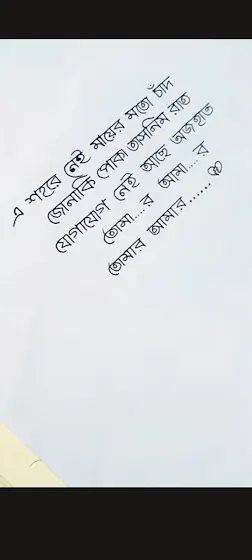 এ শহরে নেই মায়ের মতো চাঁদ
জোনাকি পোকা তাসনিম রাত
যোগাযোগ নেই আছে অজুহাত
তোমা....র আমা....র
তোমার আমার......